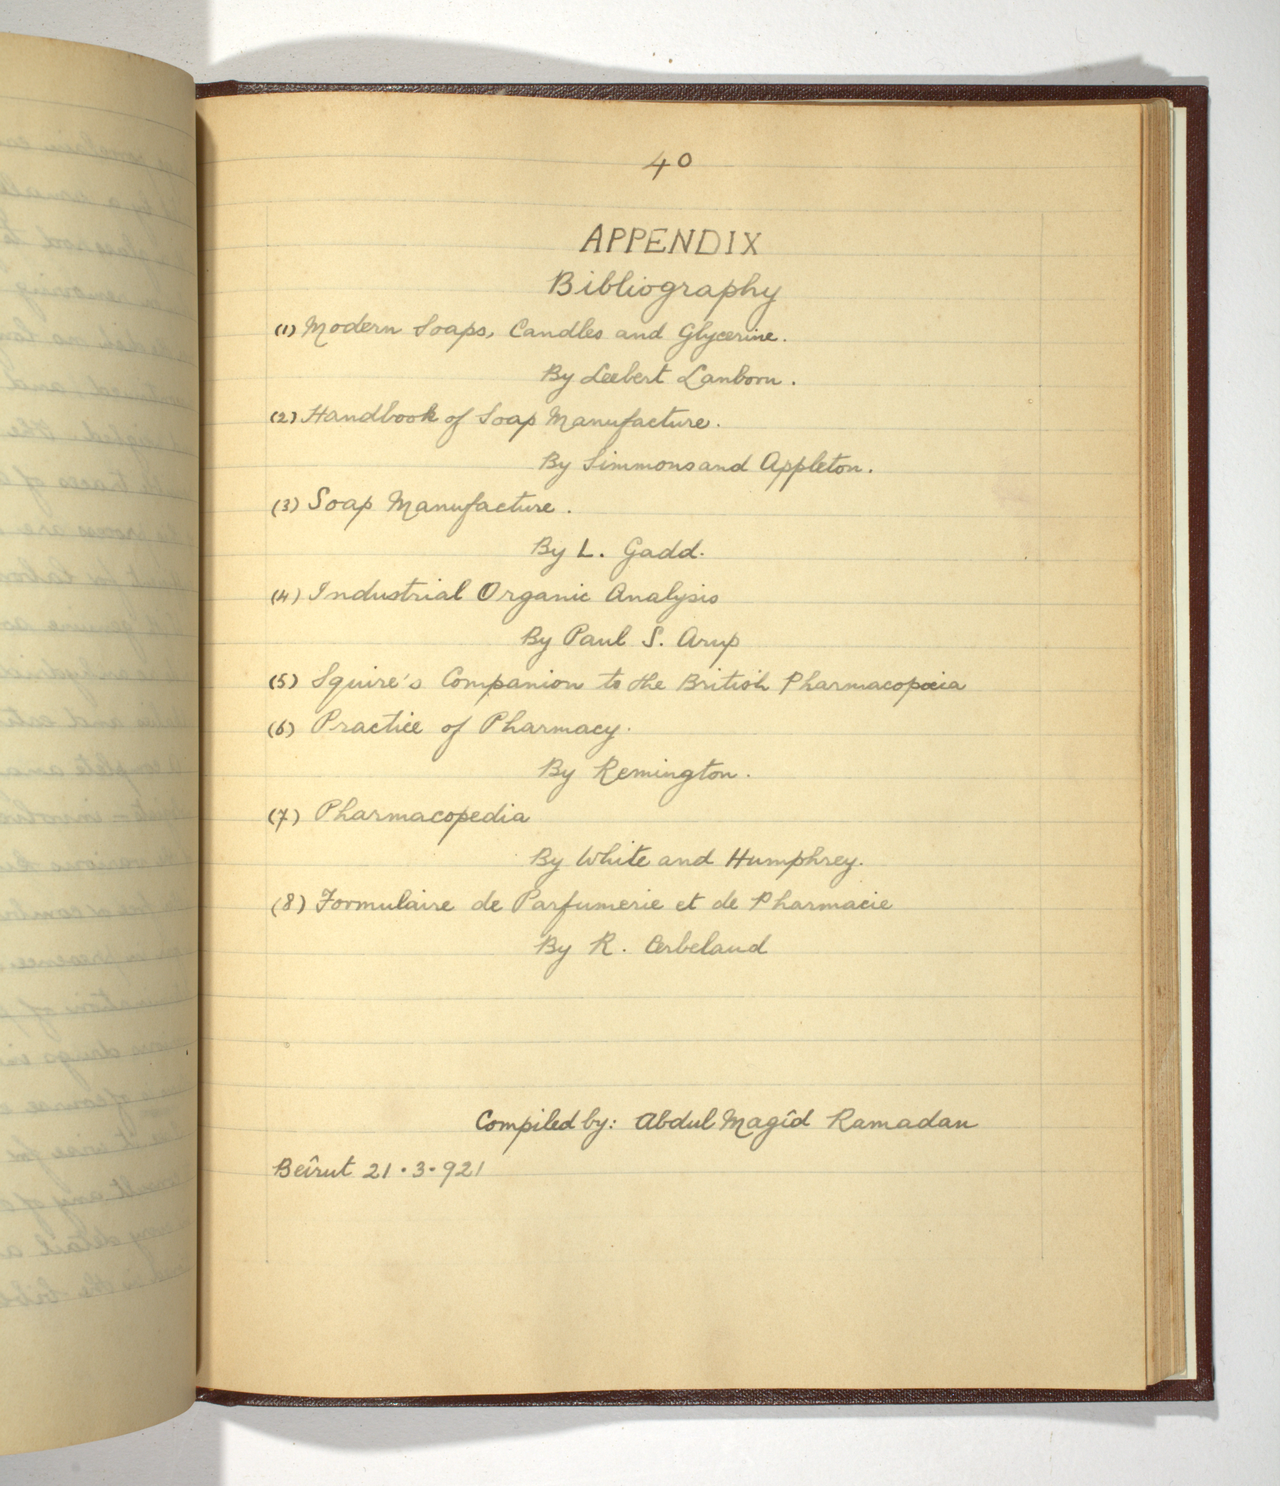 40
APPENDIX
Bibliography
(1) Modern Soaps, Candles and Glycerine.
By Leebert Lanborn.
(2) Handbook of Soap Manufacture.
By Simmons and Appleton.
(3) Soap Manufacture.
By L. Gadd.
(4) Industrial Organic Analysis
By Paul S. Arup
(5) Squire's Companion to the British Pharmacopœia
(6) Practice of Pharmacy.
By Remington.
(7) Pharmacopedia
By White and Humphrey.
(8) Formulaire de Parfumerie et de Pharmacie
By R. Cerbelaud
Compiled by: Abdul Magîd Ramadan
Beîrut 21·3·921